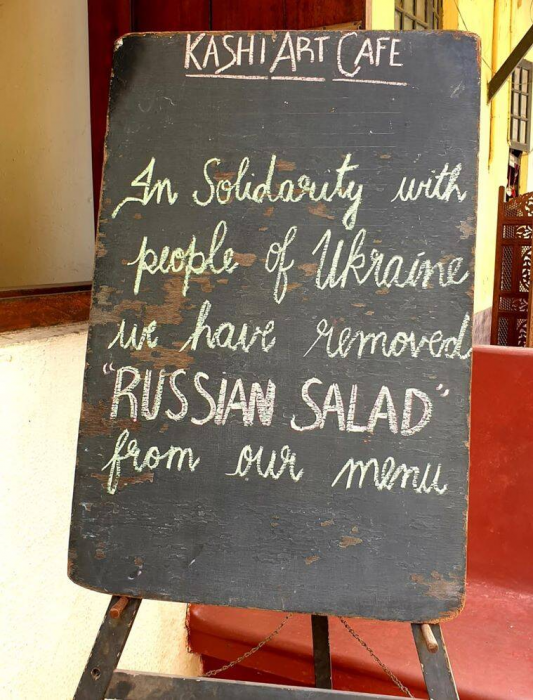 KASHI ART CAFE
In Solidarity with
people of Ukraine
we have removed
"RUSSIAN SALAD"
from our menu